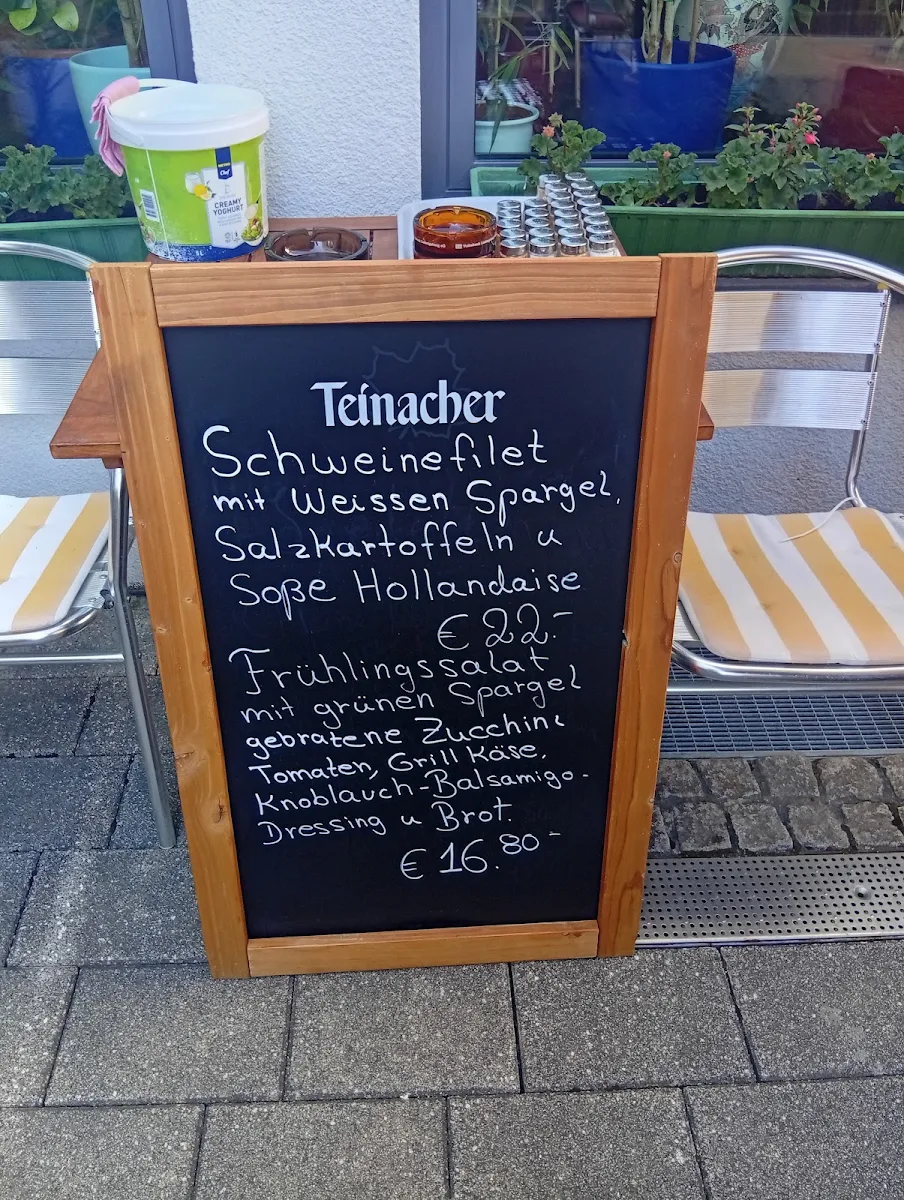 METRO
Chef
CREAMY
YOGHURT
5L
Teinacher
Schweinefilet
mit Weissen Spargel,
Salzkartoffeln u
Soße Hollandaise
€ 22.-
Frühlingssalat
mit grünen Spargel
gebratene Zucchini
Tomaten, Grill Käse,
Knoblauch-Balsamigo-
Dressing u Brot.
€ 16.80-